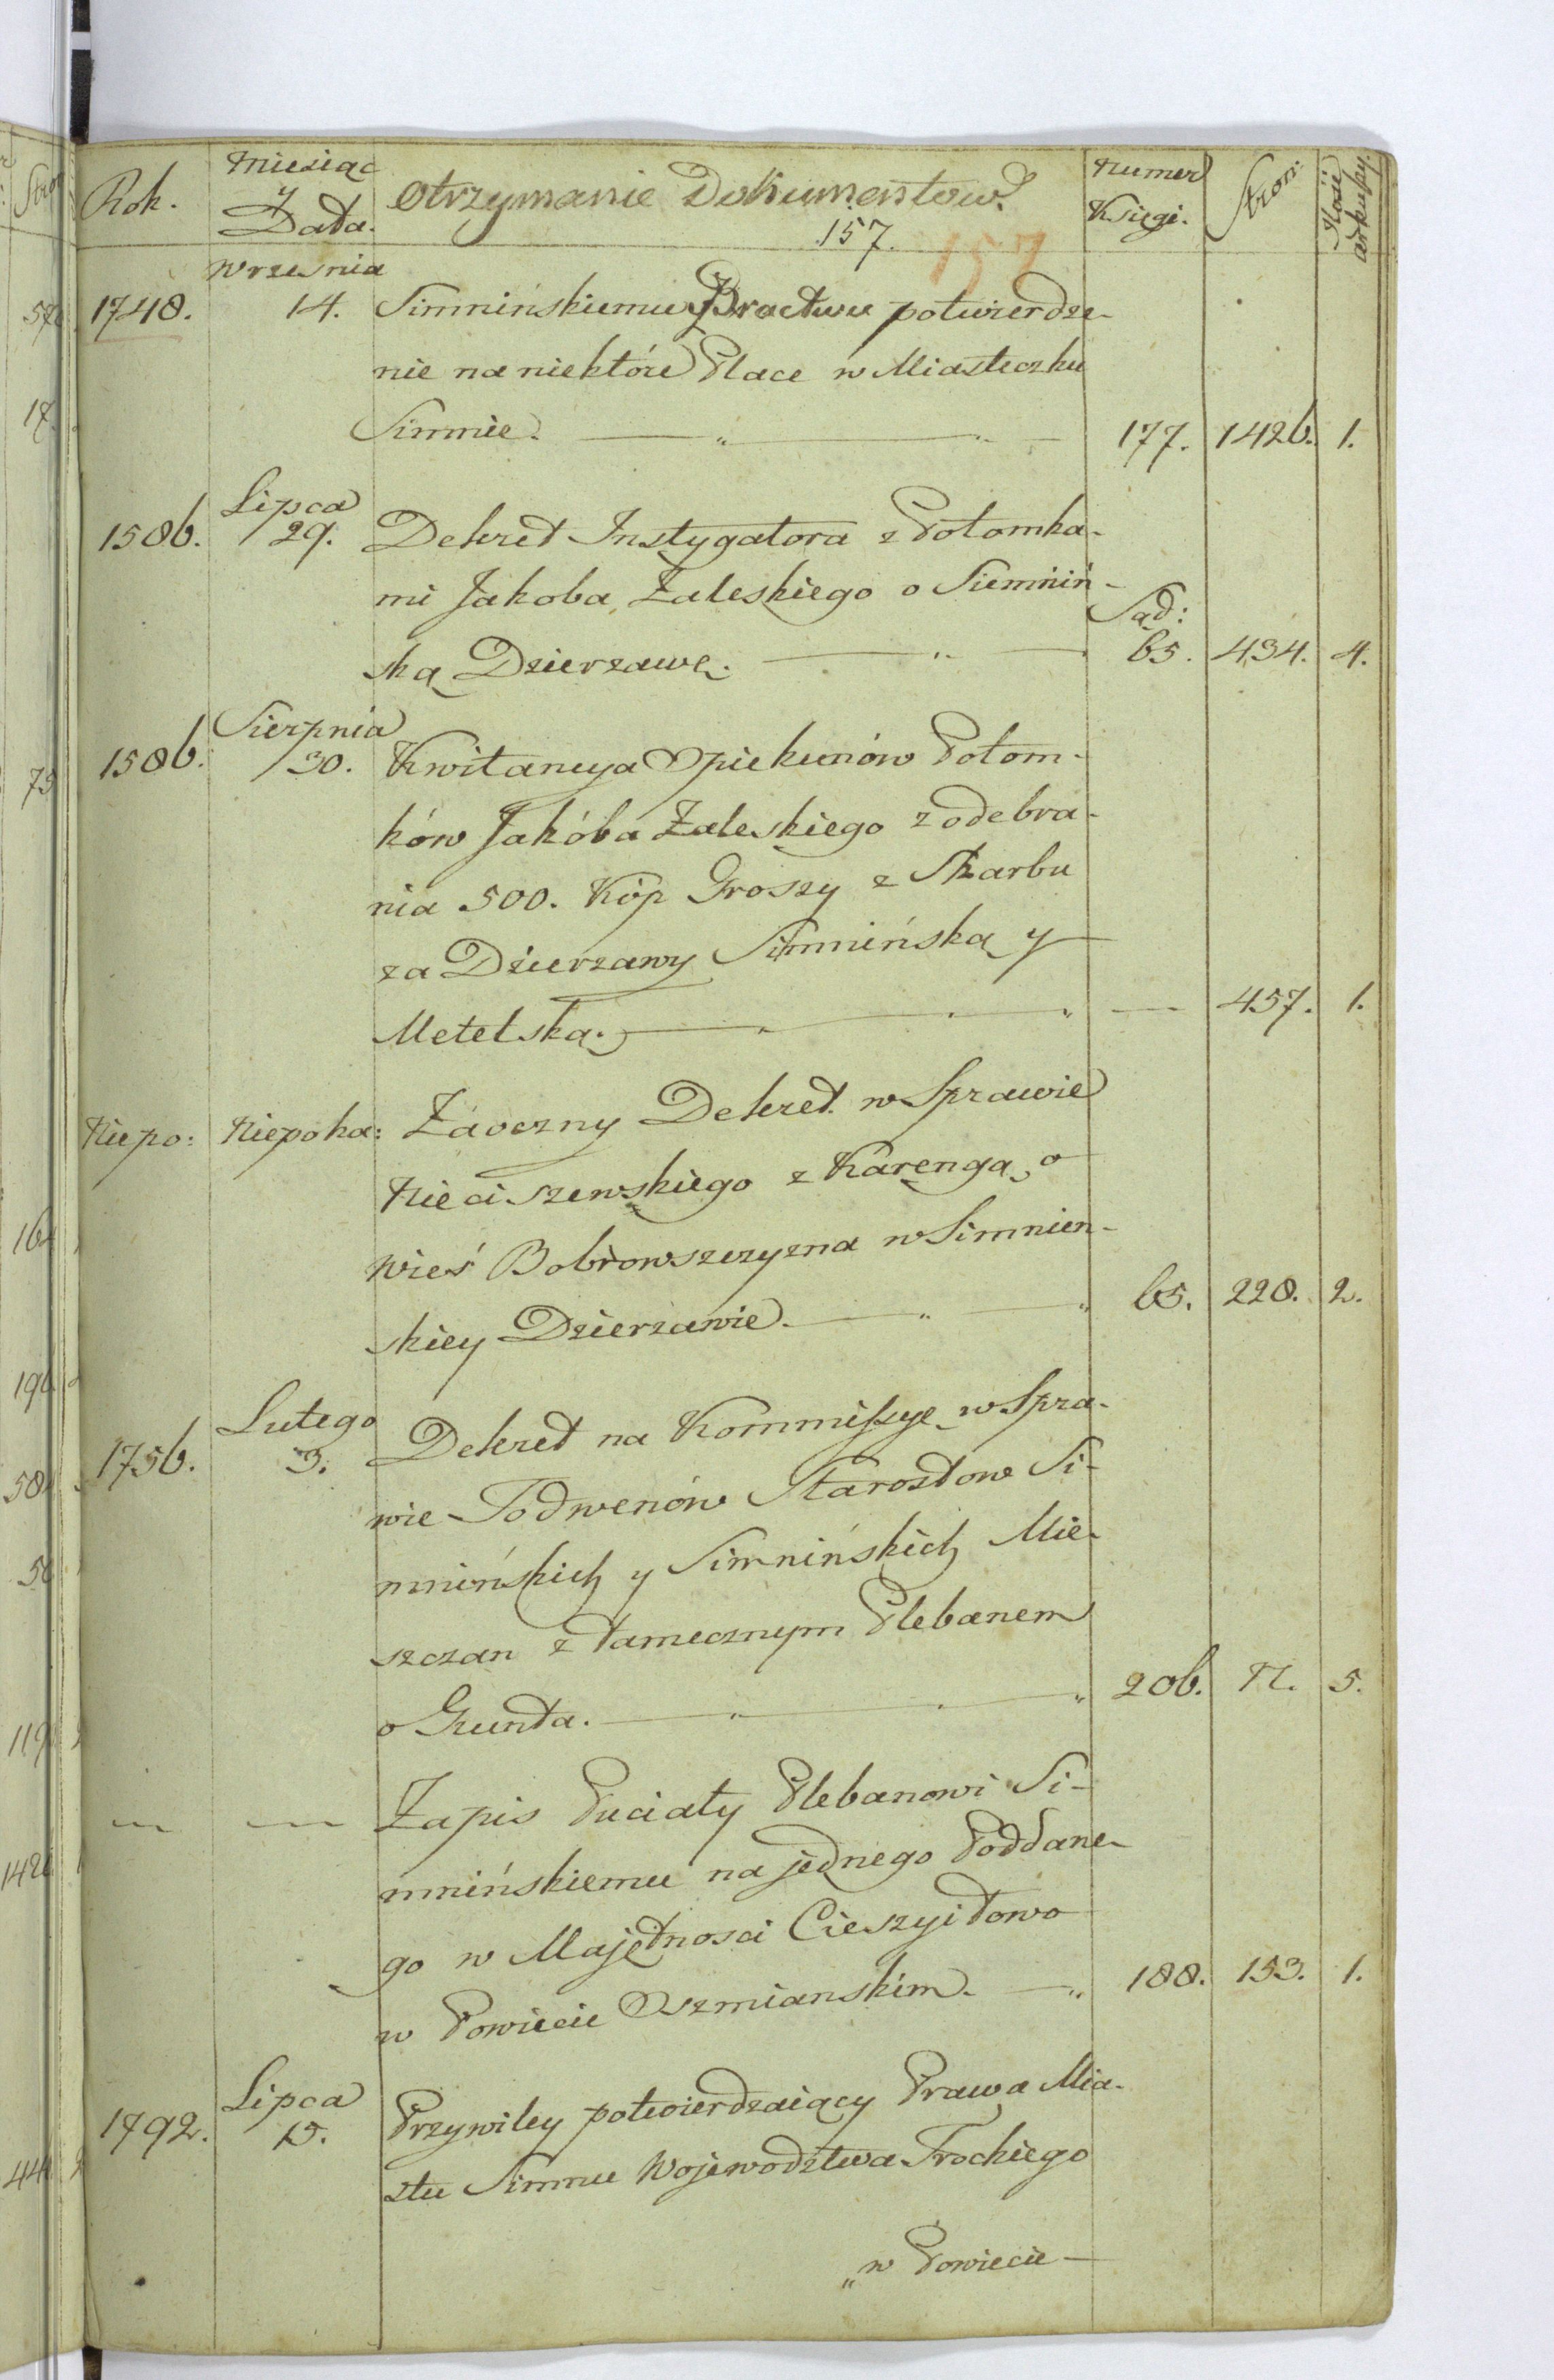 Rok. Miesiąc y Data. Otrzymanie Dokumentow. Numer Księgi. Stron: Ilość arkuszy.
157. 157
Wrzesnia
1748. 14. Simnińskiemu Bractwu potwierdze-
nie na niektóre Place w Miasteczku
Simnie. 177. 1426. 1.
Lipca
1586. 29. Dekret Instygatora z Potomka-
mi Jakoba Zaleskiego o Siemniń-
Sąd:
ską Dzierzawę. 65. 434. 4.
Sierpnia
1586. 30. Kwitancya Opiekunów Potom-
ków Jakóba Zaleskiego z odebra-
nia 500. Kóp Groszy z Skarbu
za Dzierzawy Simnińską y
Metelską. — 457. 1.
Niepo: Niepoka: Zaoczny Dekret w Sprawie
Nieciszewskiego z Karengą o
Wieś Bobrowszczyzna w Simnien-
skiey Dzierzawie. 65. 228. 2.
Lutego
1756. 3. Dekret na Kommissyę w Spra-
wie Todwenów Starostow Si-
mnińskich y Simnińskich Mie-
szczan z tamecznym Plebanem
o Grunta. 206. 71. 5.
— — Zapis Puciaty Plebanowi Si-
mnińskiemu na jednego Poddane-
go w Majętnosci Cieszyitowo
w Powiecie Oszmianskim. 188. 153. 1.
Lipca
1792. 15. Przywiley potwierdzaiący Prawa Mia-
stu Simnu Wojewodztwa Trockiego
„w Powiecie —